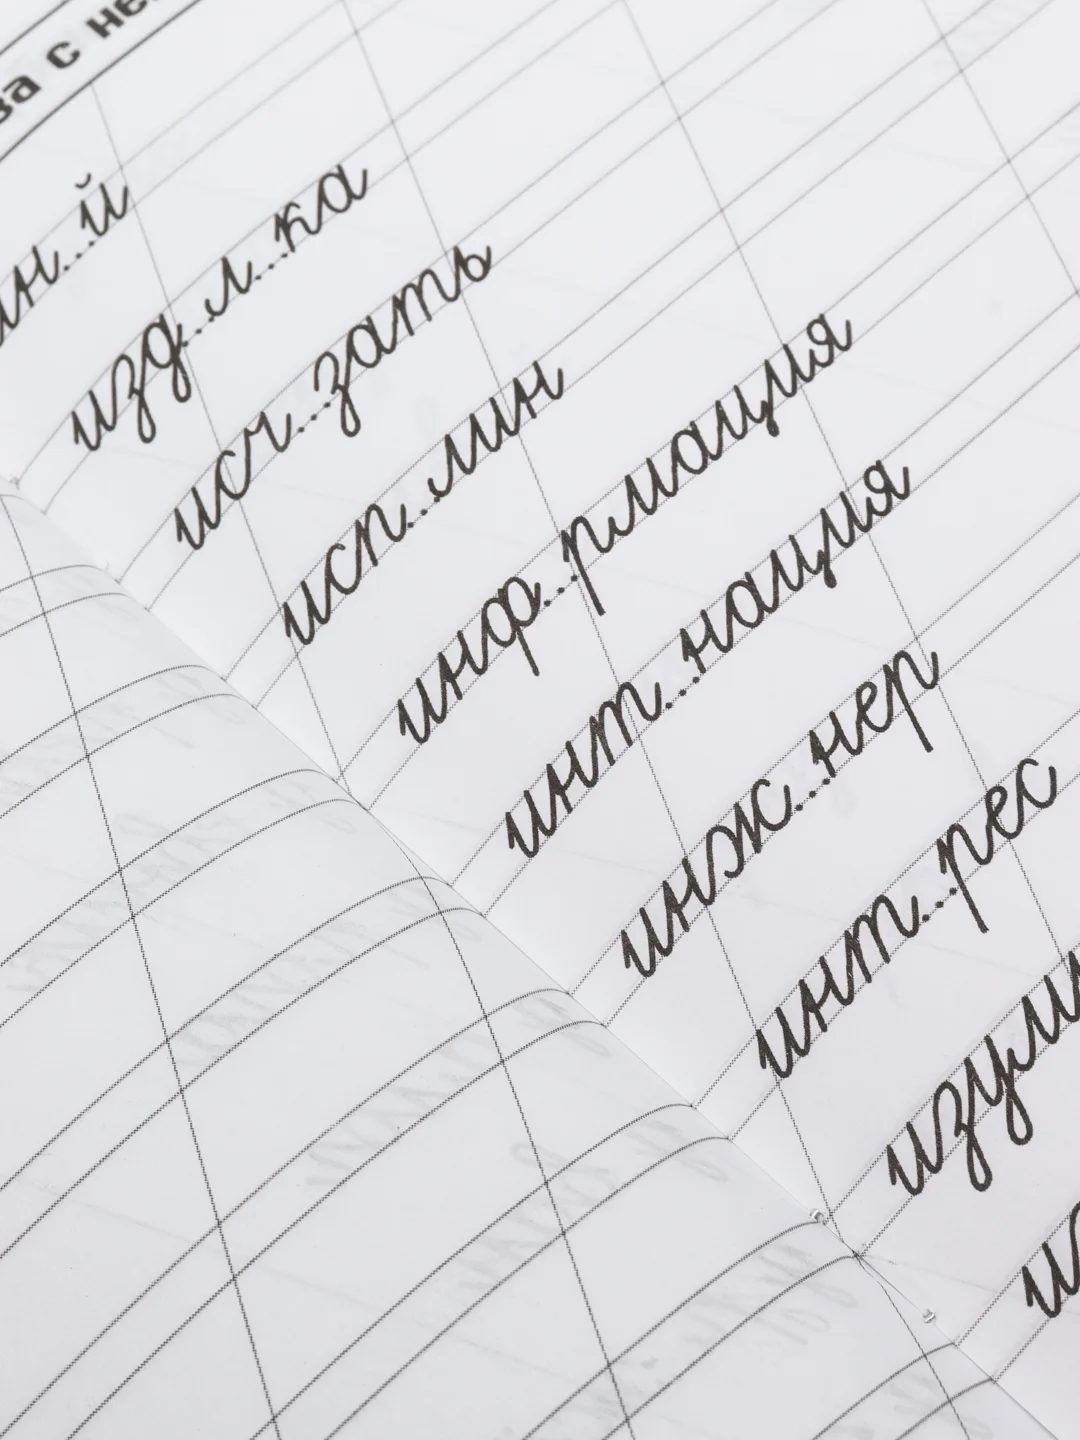 ва с не
н..й
изд..л..ка
исч..зать
исп..лин
инф..рмация
инт..нация
инж..нер
инт..рес
изум
и